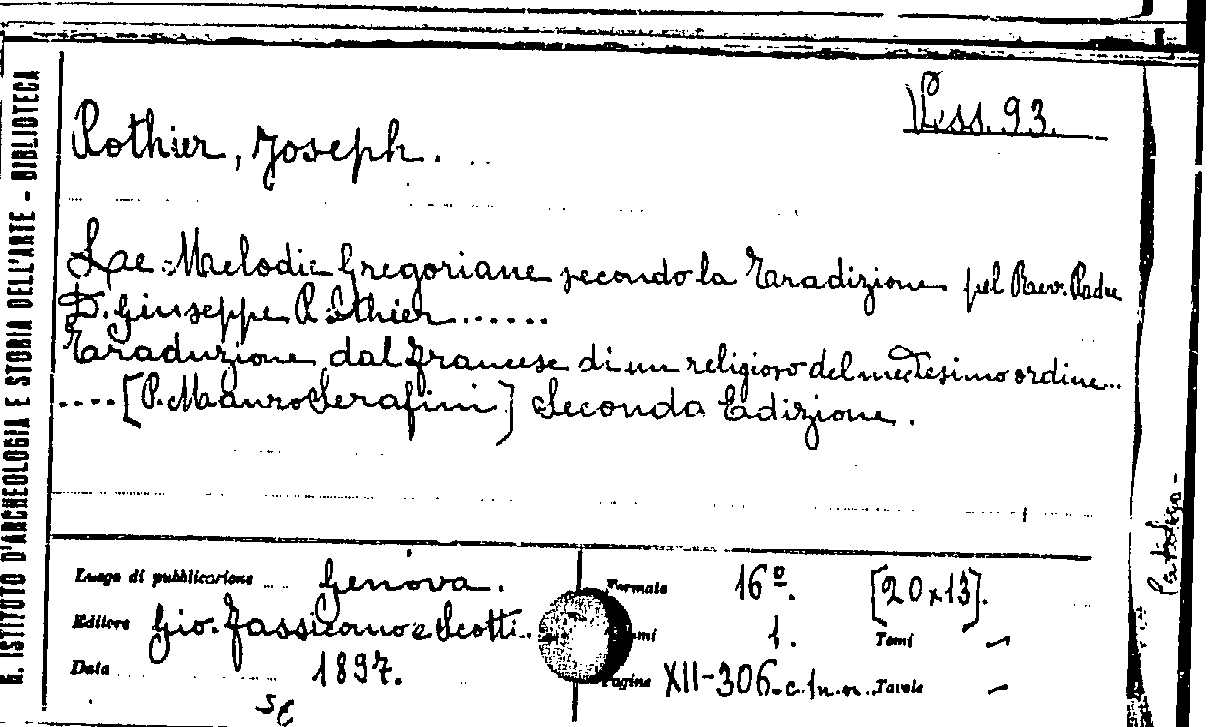 R. ISTITUTO D'ARCHEOLOGIA E STORIA DELL'ARTE - BIBLIOTECA
Piss. 93.
Pothier, Joseph.
Le Melodie Gregoriane secondo la Tradizione pel Rev. Padre
D. Giuseppe Pothier......
Traduzione dal francese di un religioso del medesimo ordine...
....[P. Mauro Serafini] Seconda Edizione.
Luogo di pubblicazione Genova. Formato 16º. [20x13].
Editore Gio. Fassicomo e Scotti. 1. Tomi –
Data 1897. Pagine XII-306. c.1n.n. Tavole –